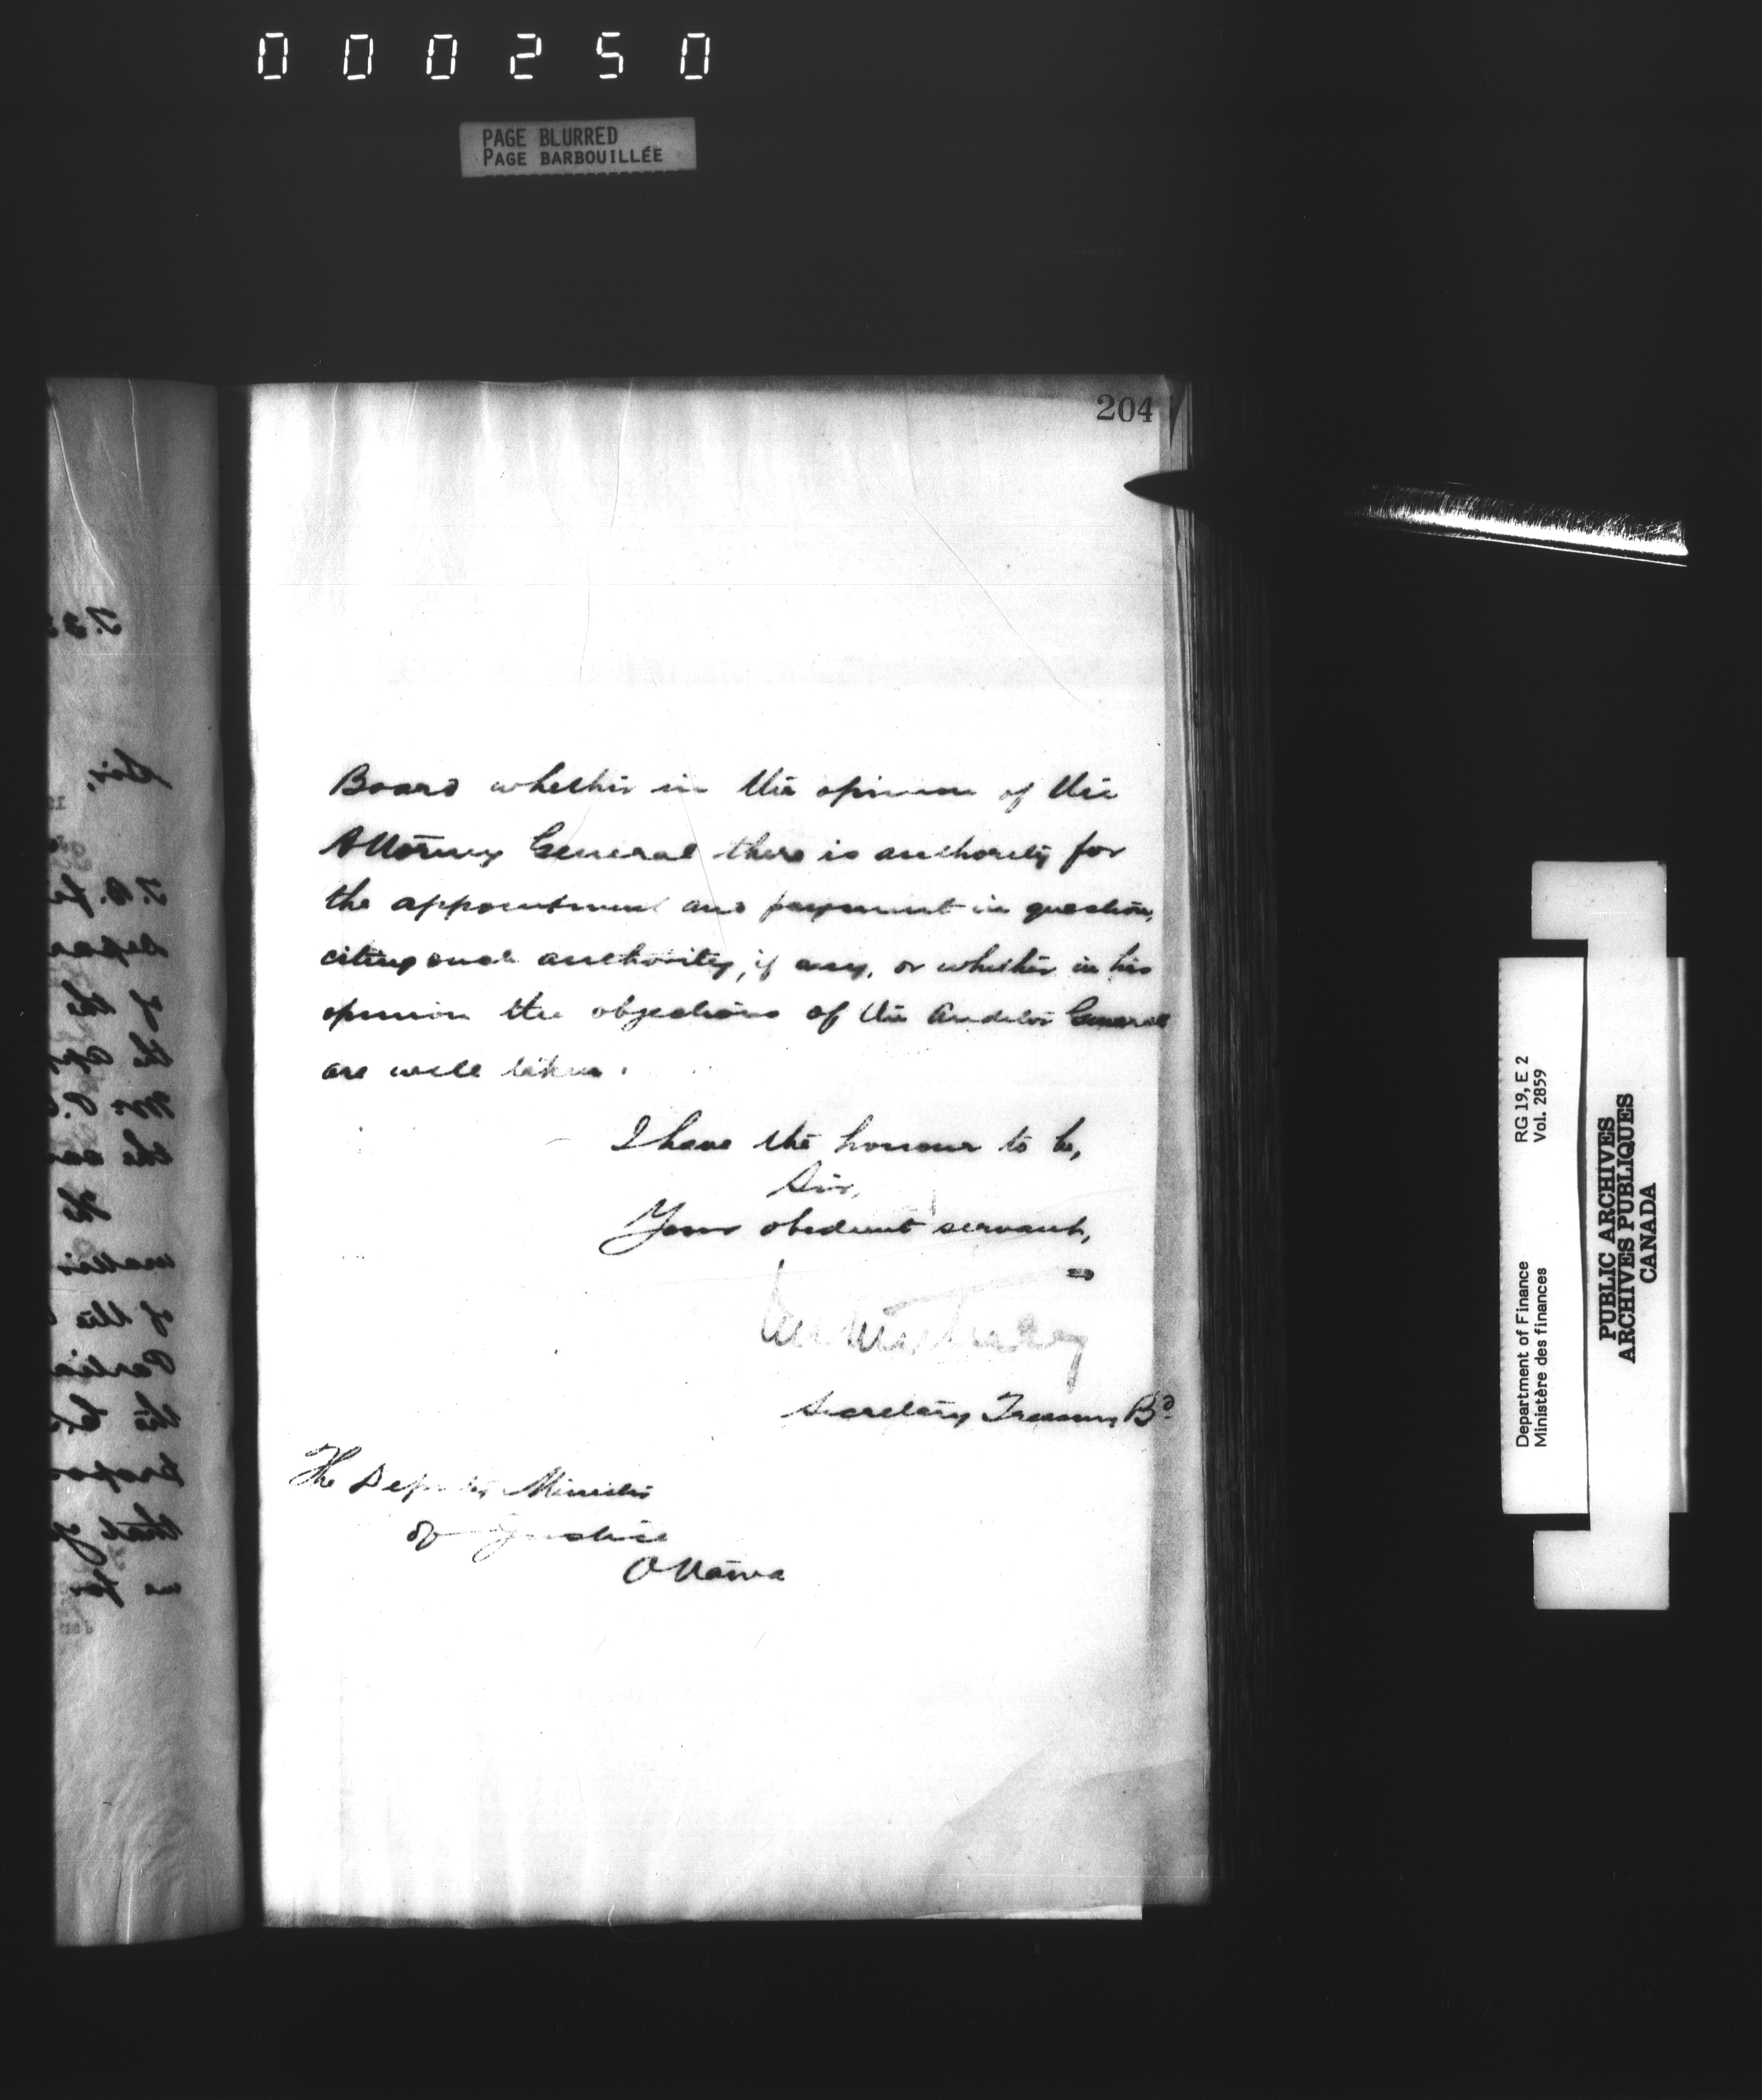 000250
PAGE BLURRED
PAGE BARBOUILLÉE
204
Board whether in the opinion of the
Attorney General there is authority for
the appointment and payment in question,
citing such authority, if any, or whether in his
opinion the objections of the Auditor General
are well taken.
I have the honour to be,
Sir,
Your obedient servant,
Secretary Treasury Bd
The Deputy Minister
of Justice
Ottawa
RG 19, E 2
Vol. 2859
Department of Finance
Ministère des finances
PUBLIC ARCHIVES
ARCHIVES PUBLIQUES
CANADA